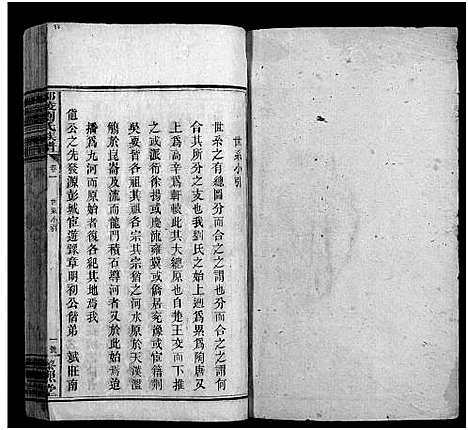 世系小引
世系之有總圖分而合之之謂也分而合之之謂何
合其所分之支也我劉氏之始上遡爲累爲陶唐又
上爲高辛爲軒轅此其大總原也自楚王交而下推
之或派衍徐揚或慶流雍冀或僑居兖豫或宦籍荆
吳要各祖其祖各宗其宗猶之河水原於天漢濫
觴於崑崙及流而龍門積石導河者又於此始焉迨
播爲九河而原始者復各犯其地焉我
值公之先發源彭城宦遊豫章明初公偕弟 斌莊南
卷一
世系小引
一